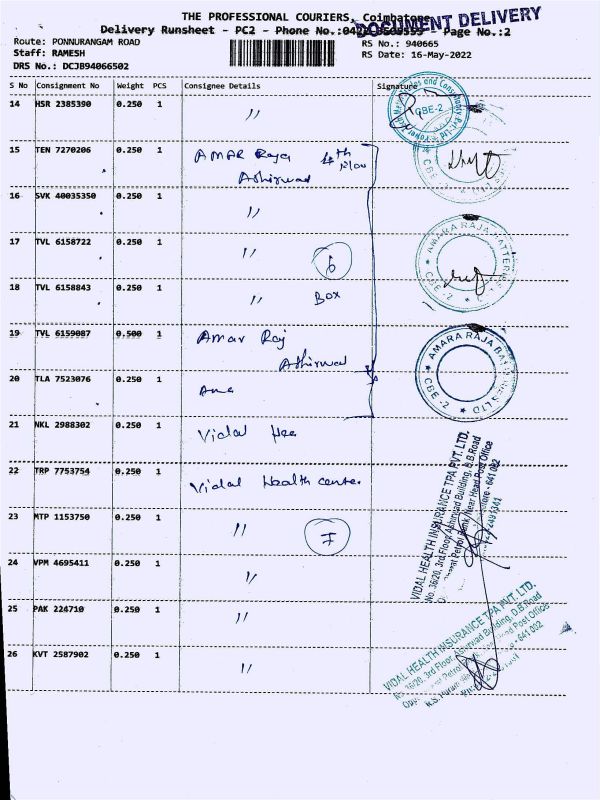 THE PROFESSIONAL COURIERS, Coimbatore
DOCUMENT DELIVERY
Delivery Runsheet - PC2 - Phone No.: Page No.:2
Route: PONNURANGAM ROAD
RS No.: 940665
Staff: RAMESH
RS Date: 16-May-2022
DRS No.: DCJB94066502
S No Consignment No Weight PCS Consignee Details Signature
14 HSR 2385390 0.250 1 "
CBE-2
15 TEN 7270206 0.250 1 AMAR Raja 4th
Ashirwad Floor
16 SVK 40035350 0.250 1 "
17 TVL 6158722 0.250 1 "
6
AMARA RAJA BATTERIES
CBE-2
18 TVL 6158843 0.250 1 "
Box
19 TVL 6159087 0.500 1 Amar Raj
Ashirwad
AMARA RAJA BATTERIES LTD
CBE-2
20 TLA 7523076 0.250 1 Ama
21 NKL 2988302 0.250 1 Vidal Hea
22 TRP 7753754 0.250 1 Vidal Health center
23 MTP 1153750 0.250 1 "
7
24 VPM 4695411 0.250 1 "
25 PAK 224710 0.250 1 "
26 KVT 2587902 0.250 1 "
VIDAL HEALTH INSURANCE TPA PVT. LTD.
No. 36/20, 3rd Floor, Ashirvad Building, D.B.Road
Petrol Bunk, Near Head Post Office
- 641 002
VIDAL HEALTH INSURANCE TPA PVT. LTD.
No. 36/20, 3rd Floor, Ashirvad Building, D.B.Road
Post Office
- 641 002